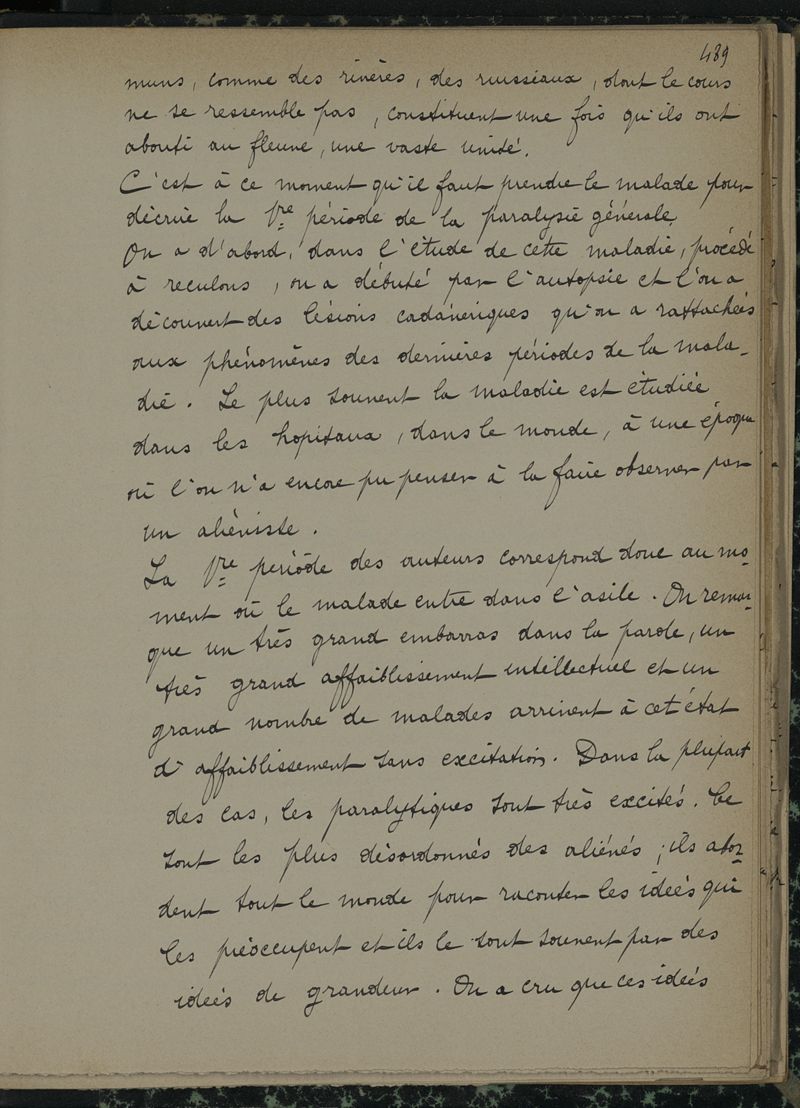 489
muns, comme des rivières, des ruisseaux, dont le cours
ne se ressemble pas, constituent une fois qu'ils ont
abouti au fleuve, une vaste unité.
C'est à ce moment qu'il faut prendre le malade pour
décrire la 1re période de la paralysie générale.
On a d'abord, dans l'étude de cette maladie, procédé
à reculons, on a débuté par l'autopsie et l'on a
découvert des lésions cadavériques qu'on a rattachées
aux phénomènes des dernières périodes de la mala-
die. Le plus souvent la maladie est étudiée
dans les hopitaux, dans le monde, à une époque
où l'on n'a encore pu penser à la faire observer par
un aliéniste.
La 1re période des auteurs correspond donc au mo-
ment où le malade entre dans l'asile. On remar-
que un très grand embarras dans la parole, un
très grand affaiblissement intellectuel et un
grand nombre de malades arrivent à cet état
d'affaiblissement sans excitation. Dans la plupart
des cas, les paralytiques sont très excités. Ce
sont les plus désordonnés des aliénés ; ils abor-
dent tout le monde pour raconter les idées qui
les préoccupent et ils le sont souvent par des
idées de grandeur. On a cru que ces idées